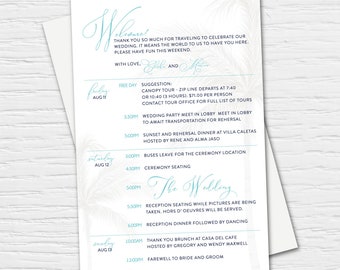 Welcome!
THANK YOU SO MUCH FOR TRAVELING TO CELEBRATE OUR
WEDDING. IT MEANS THE WORLD TO US TO HAVE YOU HERE.
PLEASE HAVE FUN THIS WEEKEND.
WITH LOVE, and
friday
AUG 11
FREE DAY SUGGESTION:
CANOPY TOUR - ZIP LINE DEPARTS AT 7:40
OR 10:40 (3 HOURS). $71.00 PER PERSON
CONTACT TOUR OFFICE FOR FULL LIST OF TOURS
WEDDING PARTY MEET IN LOBBY MEET IN LOBBY
TO AWAIT TRANSPORTATION FOR REHERSAL
5:00PM SUNSET AND REHERSAL DINNER AT VILLA CALETAS
HOSTED BY RENE AND ALMA JASO
saturday
AUG 12
BUSES LEAVE FOR THE CEREMONY LOCATION
CEREMONY SEATING
5:00PM The Wedding
RECEPTION SEATING WHILE PICTURES ARE BEING
TAKEN. HORS D' OEUVRES WILL BE SERVED
RECEPTION DINNER FOLLOWED BY DANCING
sunday
AUG 13
THANK YOU BRUNCH AT CASA DEL CAFE
HOSTED BY GREGORY AND WENDY MAXWELL
FAREWELL TO BRIDE AND GROOM